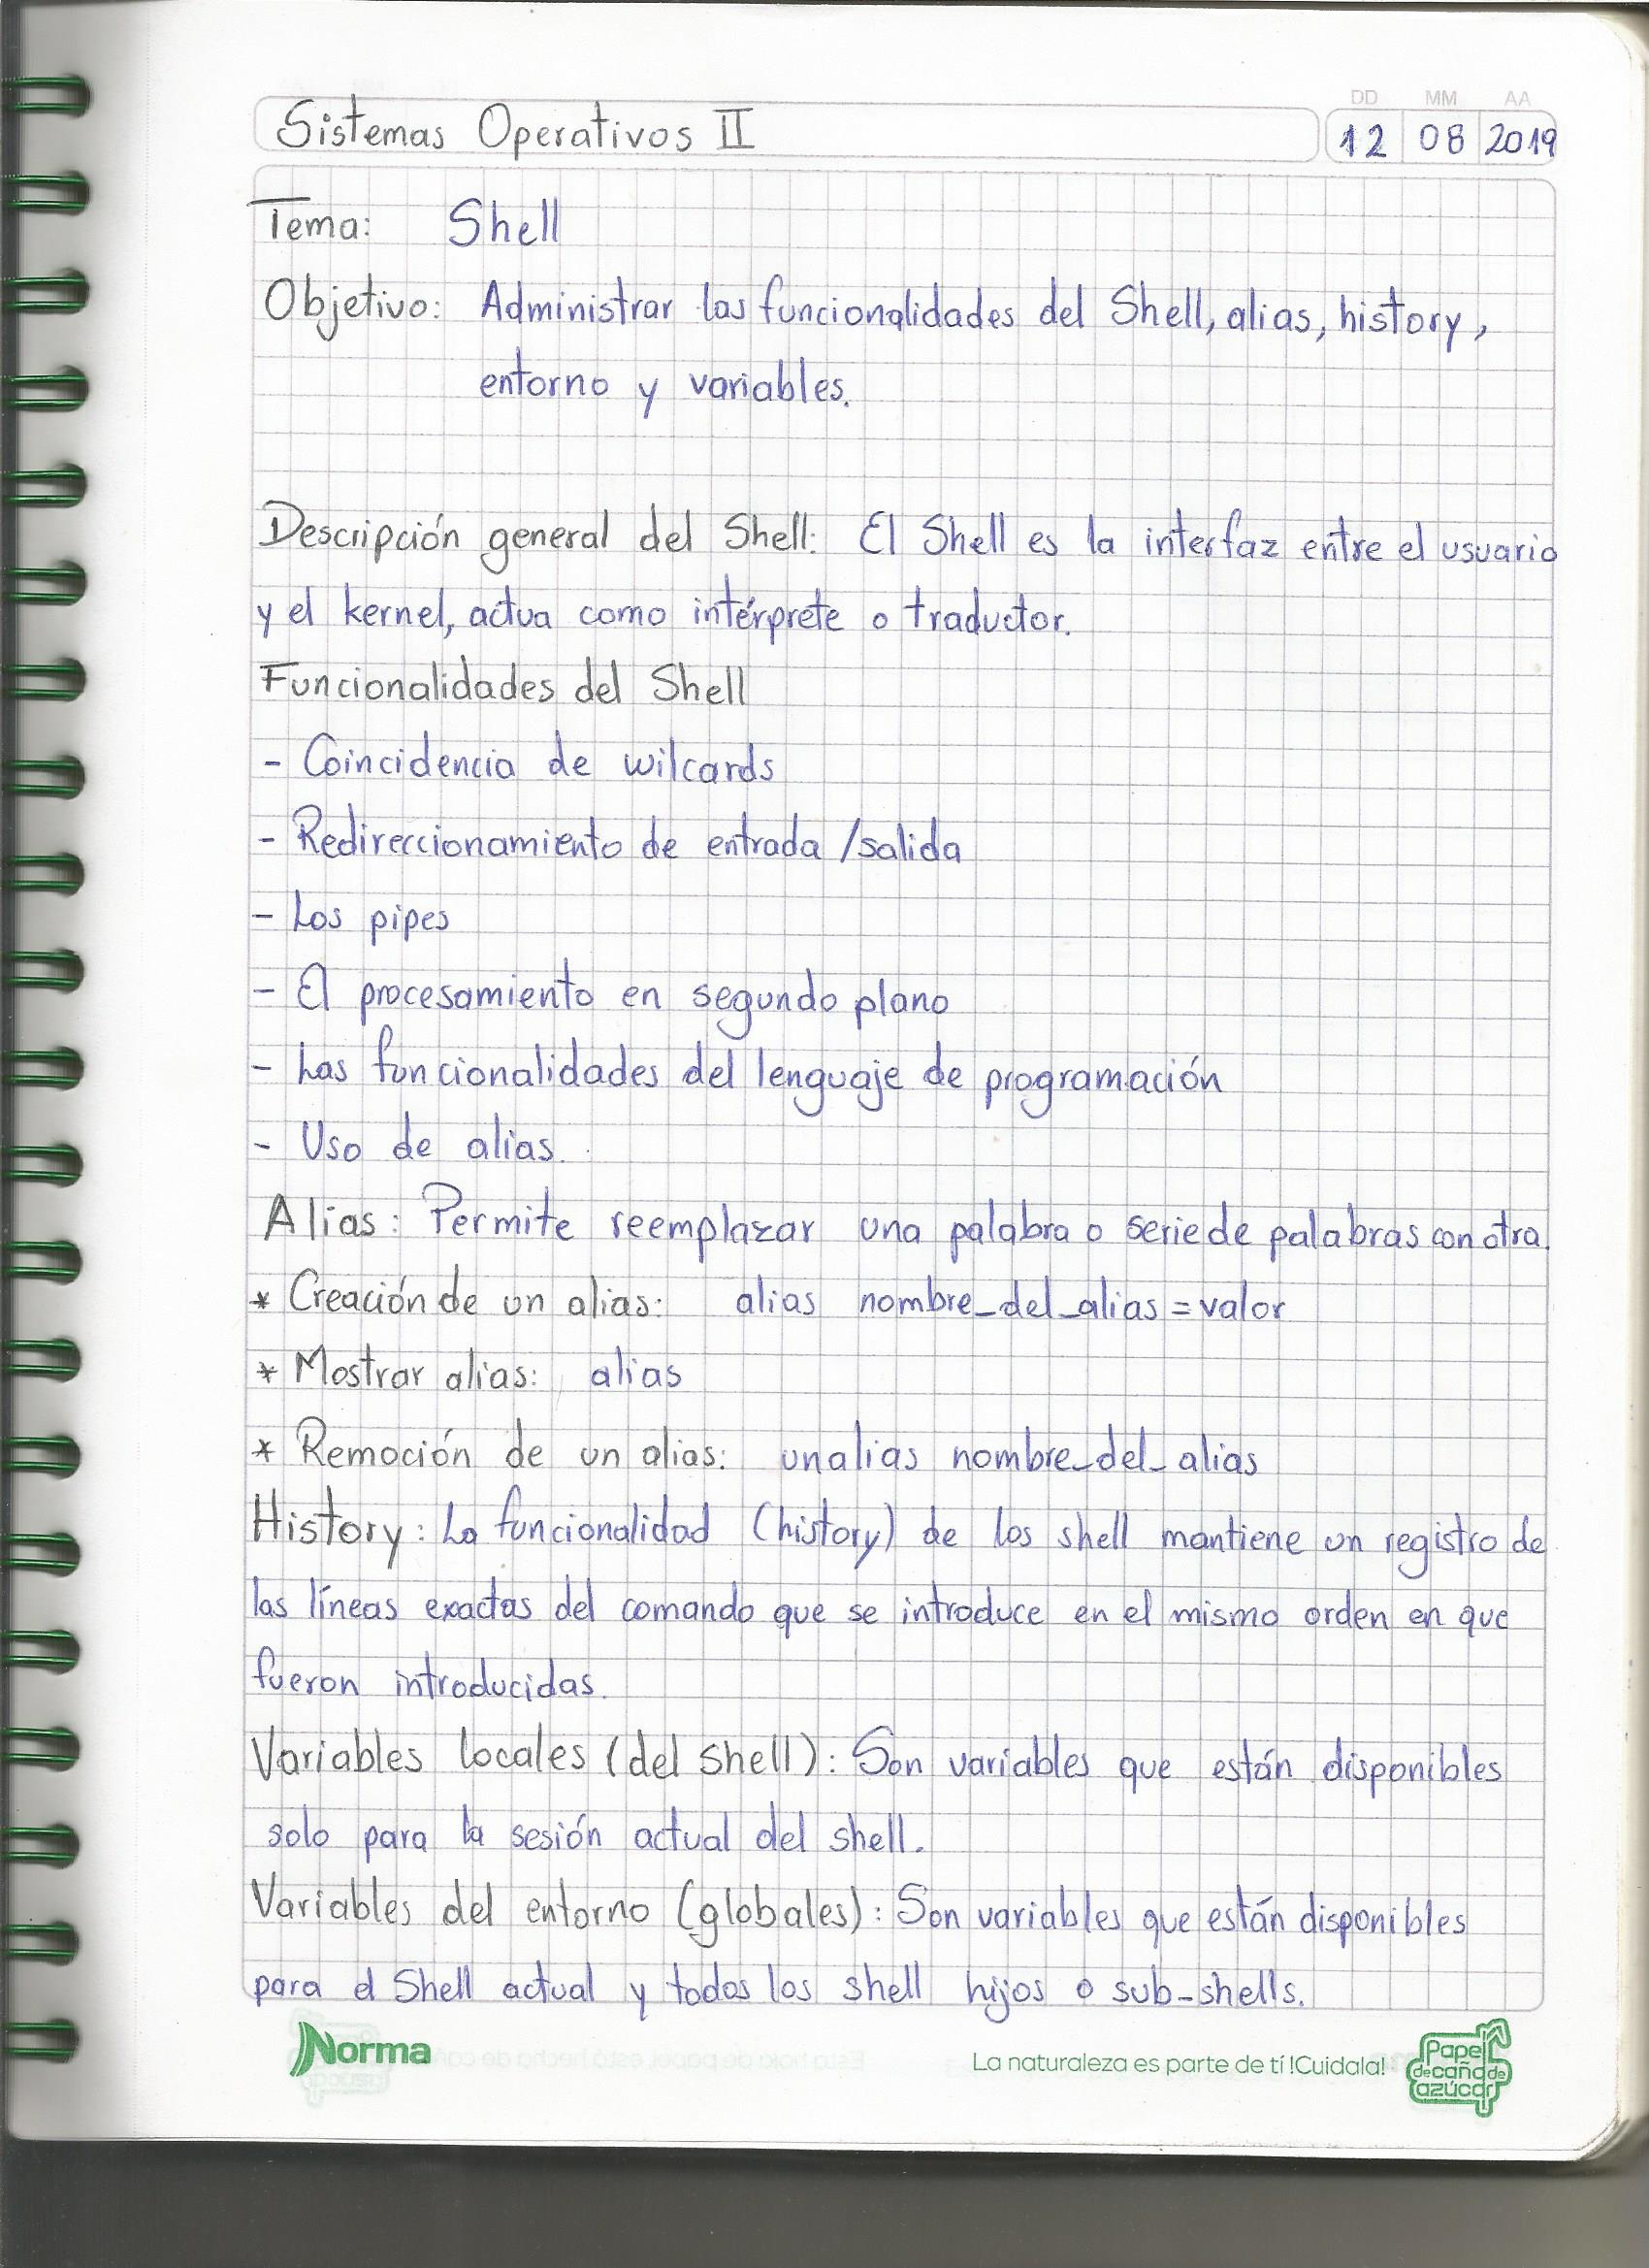 DD MM AA
Sistemas Operativos II 12 08 2019
Tema: Shell
Objetivo: Administrar las funcionalidades del Shell, alias, history,
entorno y variables.
Descripción general del Shell: El Shell es la interfaz entre el usuario
y el kernel, actua como intérprete o traductor.
Funcionalidades del Shell
- Coincidencia de wilcards
- Redireccionamiento de entrada /salida
- Los pipes
- El procesamiento en segundo plano
- Las funcionalidades del lenguaje de programación
- Uso de alias.
Alias: Permite reemplazar una palabra o serie de palabras con otra.
* Creación de un alias: alias nombre_del_alias = valor
* Mostrar alias: alias
* Remoción de un alias: unalias nombre_del_alias
History: La funcionalidad (history) de los shell mantiene un registro de
las líneas exactas del comando que se introduce en el mismo orden en que
fueron introducidas.
Variables locales (del shell): Son variables que están disponibles
solo para la sesión actual del shell.
Variables del entorno (globales): Son variables que están disponibles
para el Shell actual y todos los shell hijos o sub-shells.
Norma
La naturaleza es parte de tí !Cuidala!
Papel
de caña de
azúcar